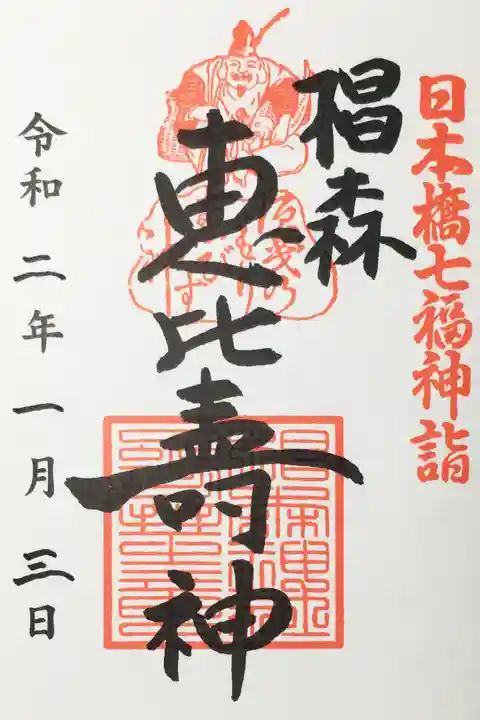 日本橋七福神詣
椙森
恵比壽神
令和二年一月三日